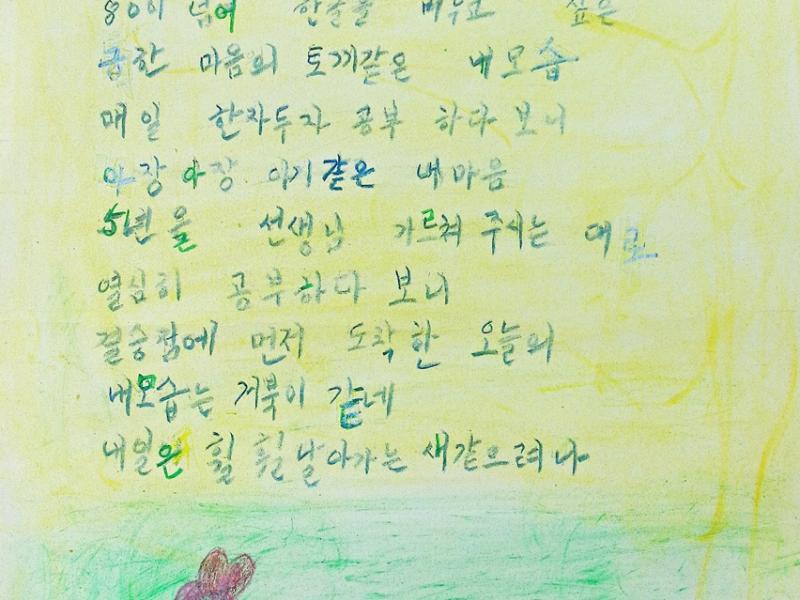 80이 넘어 한글을 배우고 싶은
급한 마음의 토끼같은 내모습
매일 한자두자 공부 하다 보니
아장 아장 아기같은 내마음
5년을 선생님 가르쳐 주시는 대로
열심히 공부하다 보니
결승점에 먼저 도착한 오늘의
내모습는 거북이 같네
내일은 훨훨 날아가는 새같으려나